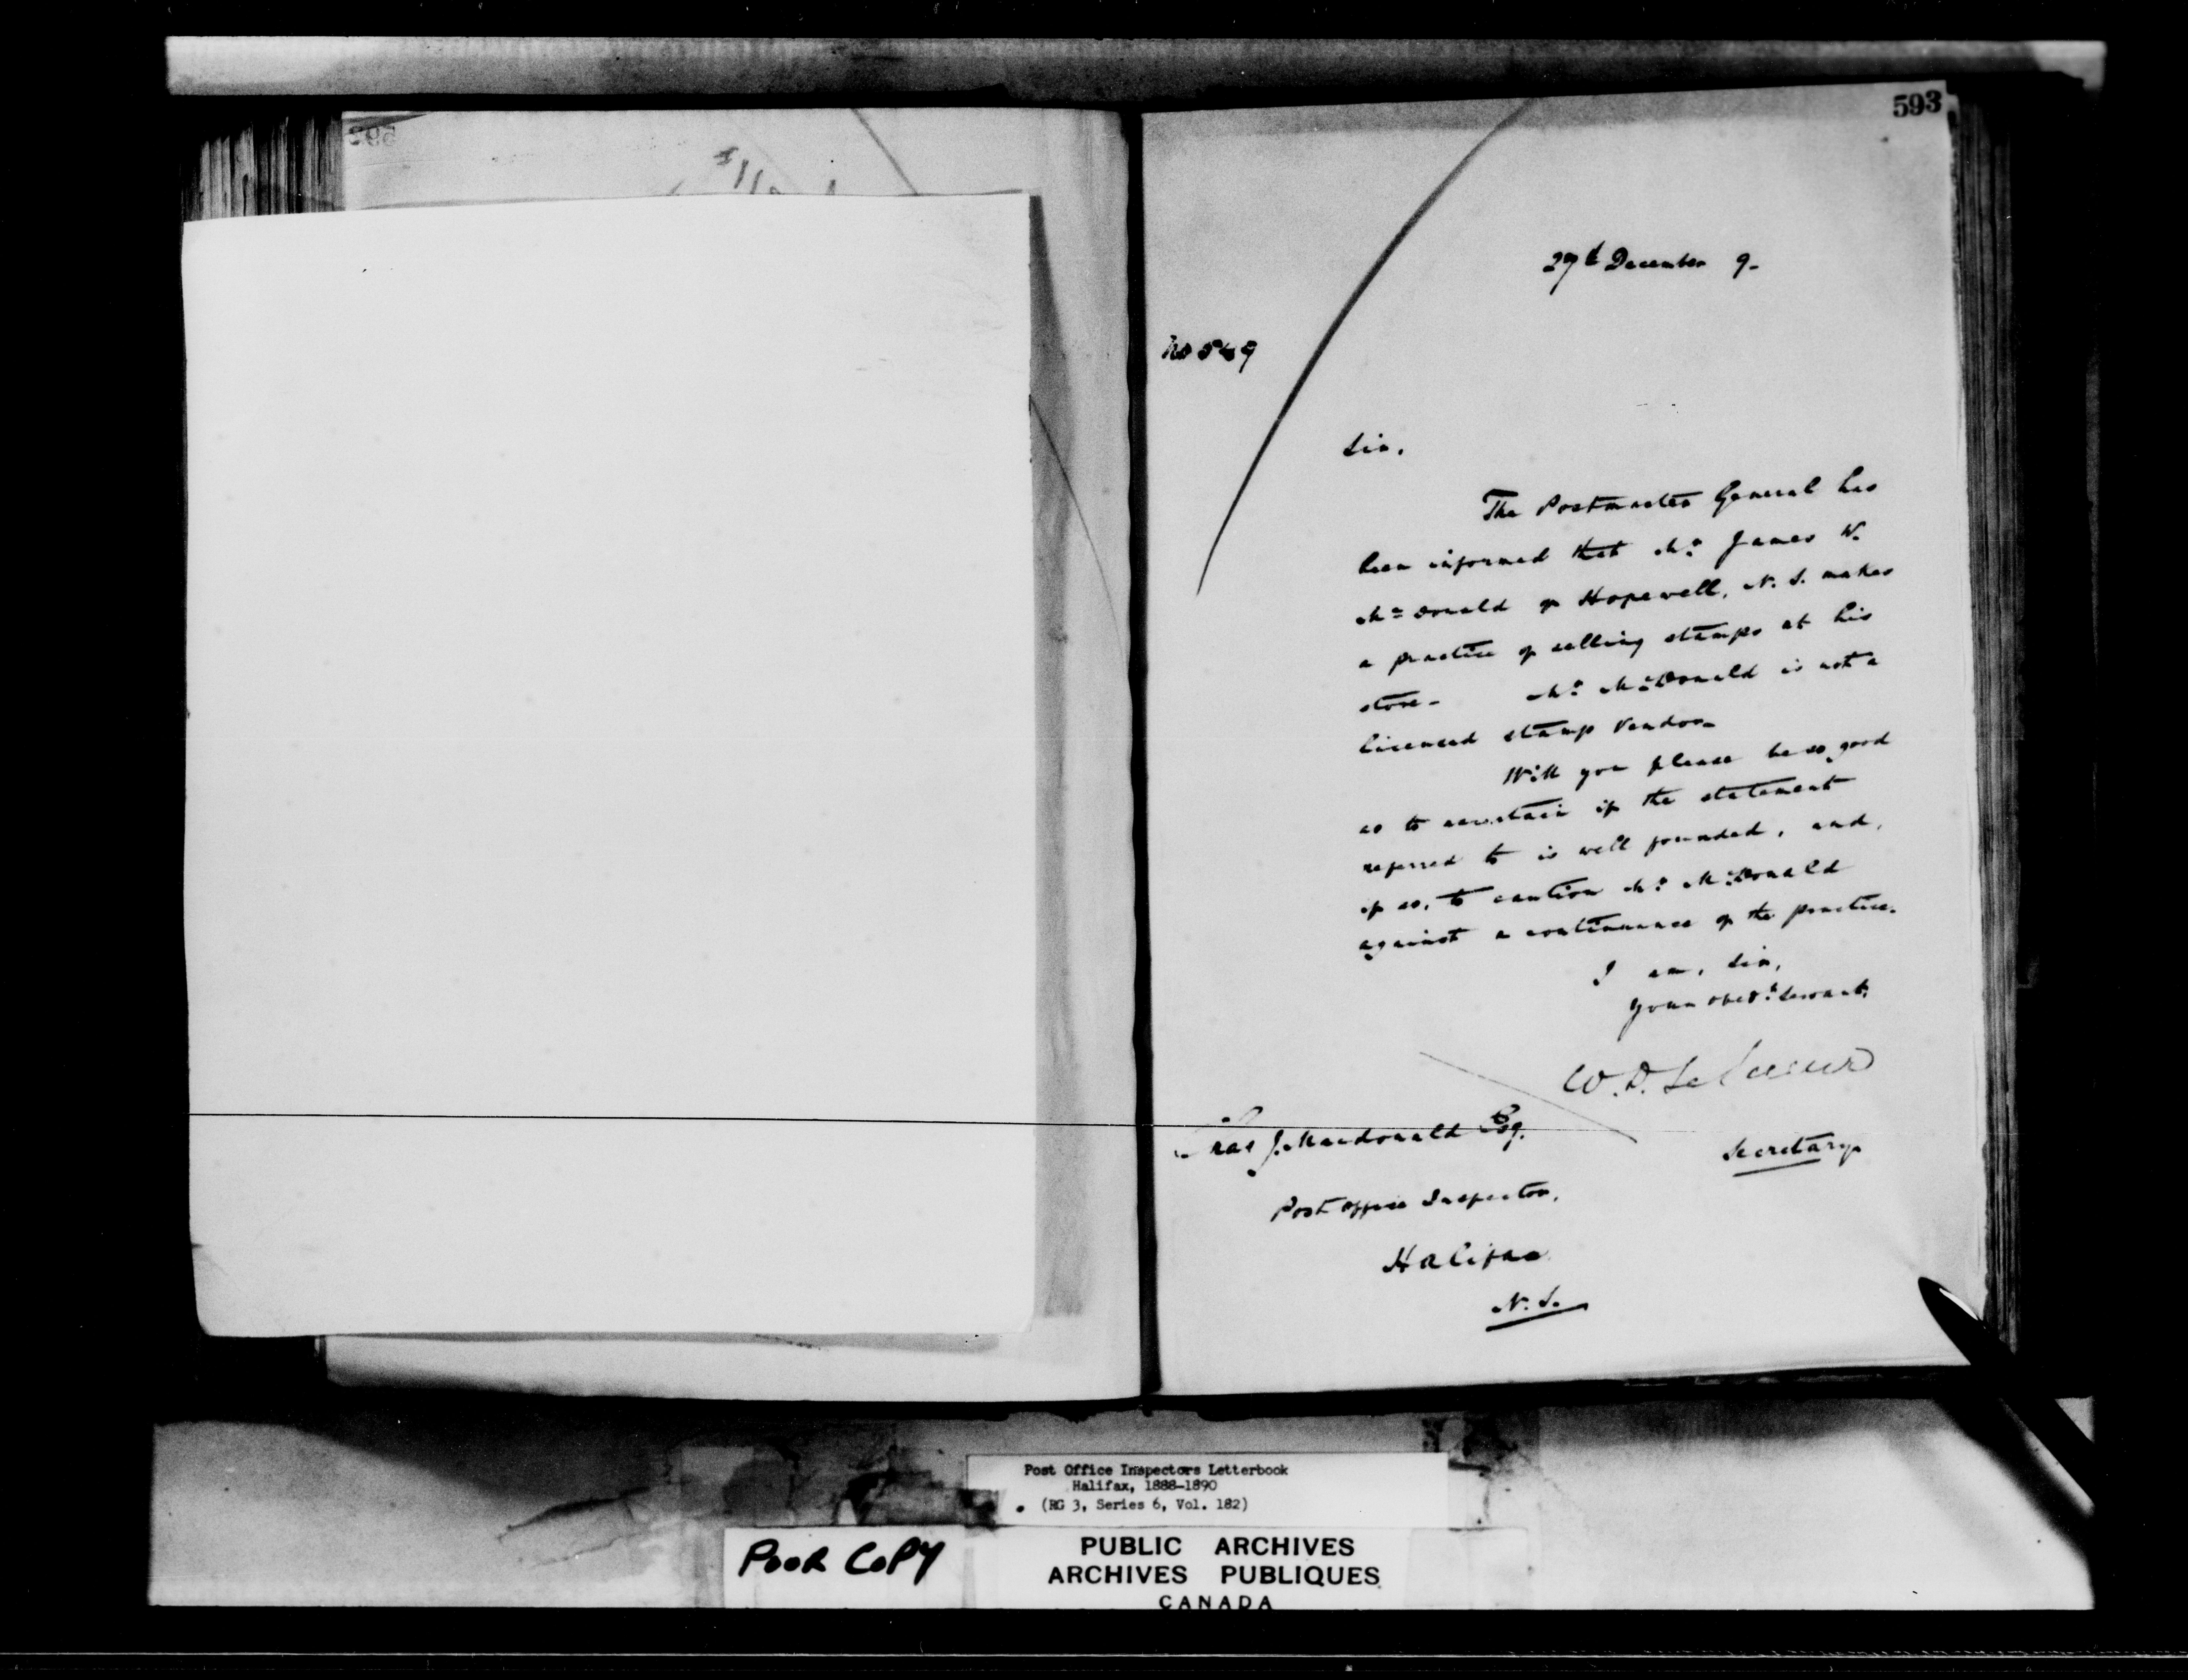 593
27th December 9-
No 549
Sir,
The Postmaster General has
been informed that Mr. James W.
McDonald of Hopewell, N.S. makes
a practice of selling stamps at his
store - Mr. McDonald is not a
licensed stamp vendor -
Will you please be so good
as to ascertain if the statement
referred to is well founded, and,
if so, to caution Mr. McDonald
against a continuance of the practice.
I am, Sir,
Your obedt. Servant,
W. D. LeSueur
Secretary
Chas J. Macdonald Esq.
Post Office Inspector,
Halifax
N.S.
Post Office Inspectors Letterbook
Halifax, 1888-1890
(RG 3, Series 6, Vol. 182)
POOR COPY
PUBLIC ARCHIVES
ARCHIVES PUBLIQUES
CANADA